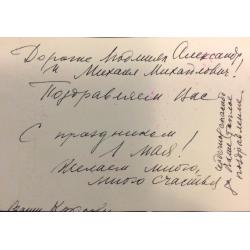 Дорогие Людмила Александр
и Михаил Михайлович!
Поздравляем Вас
С праздником
1 мая!
Желаем много,
много счастья
сердечно спасибо
за Ваше теплое
поздравление.